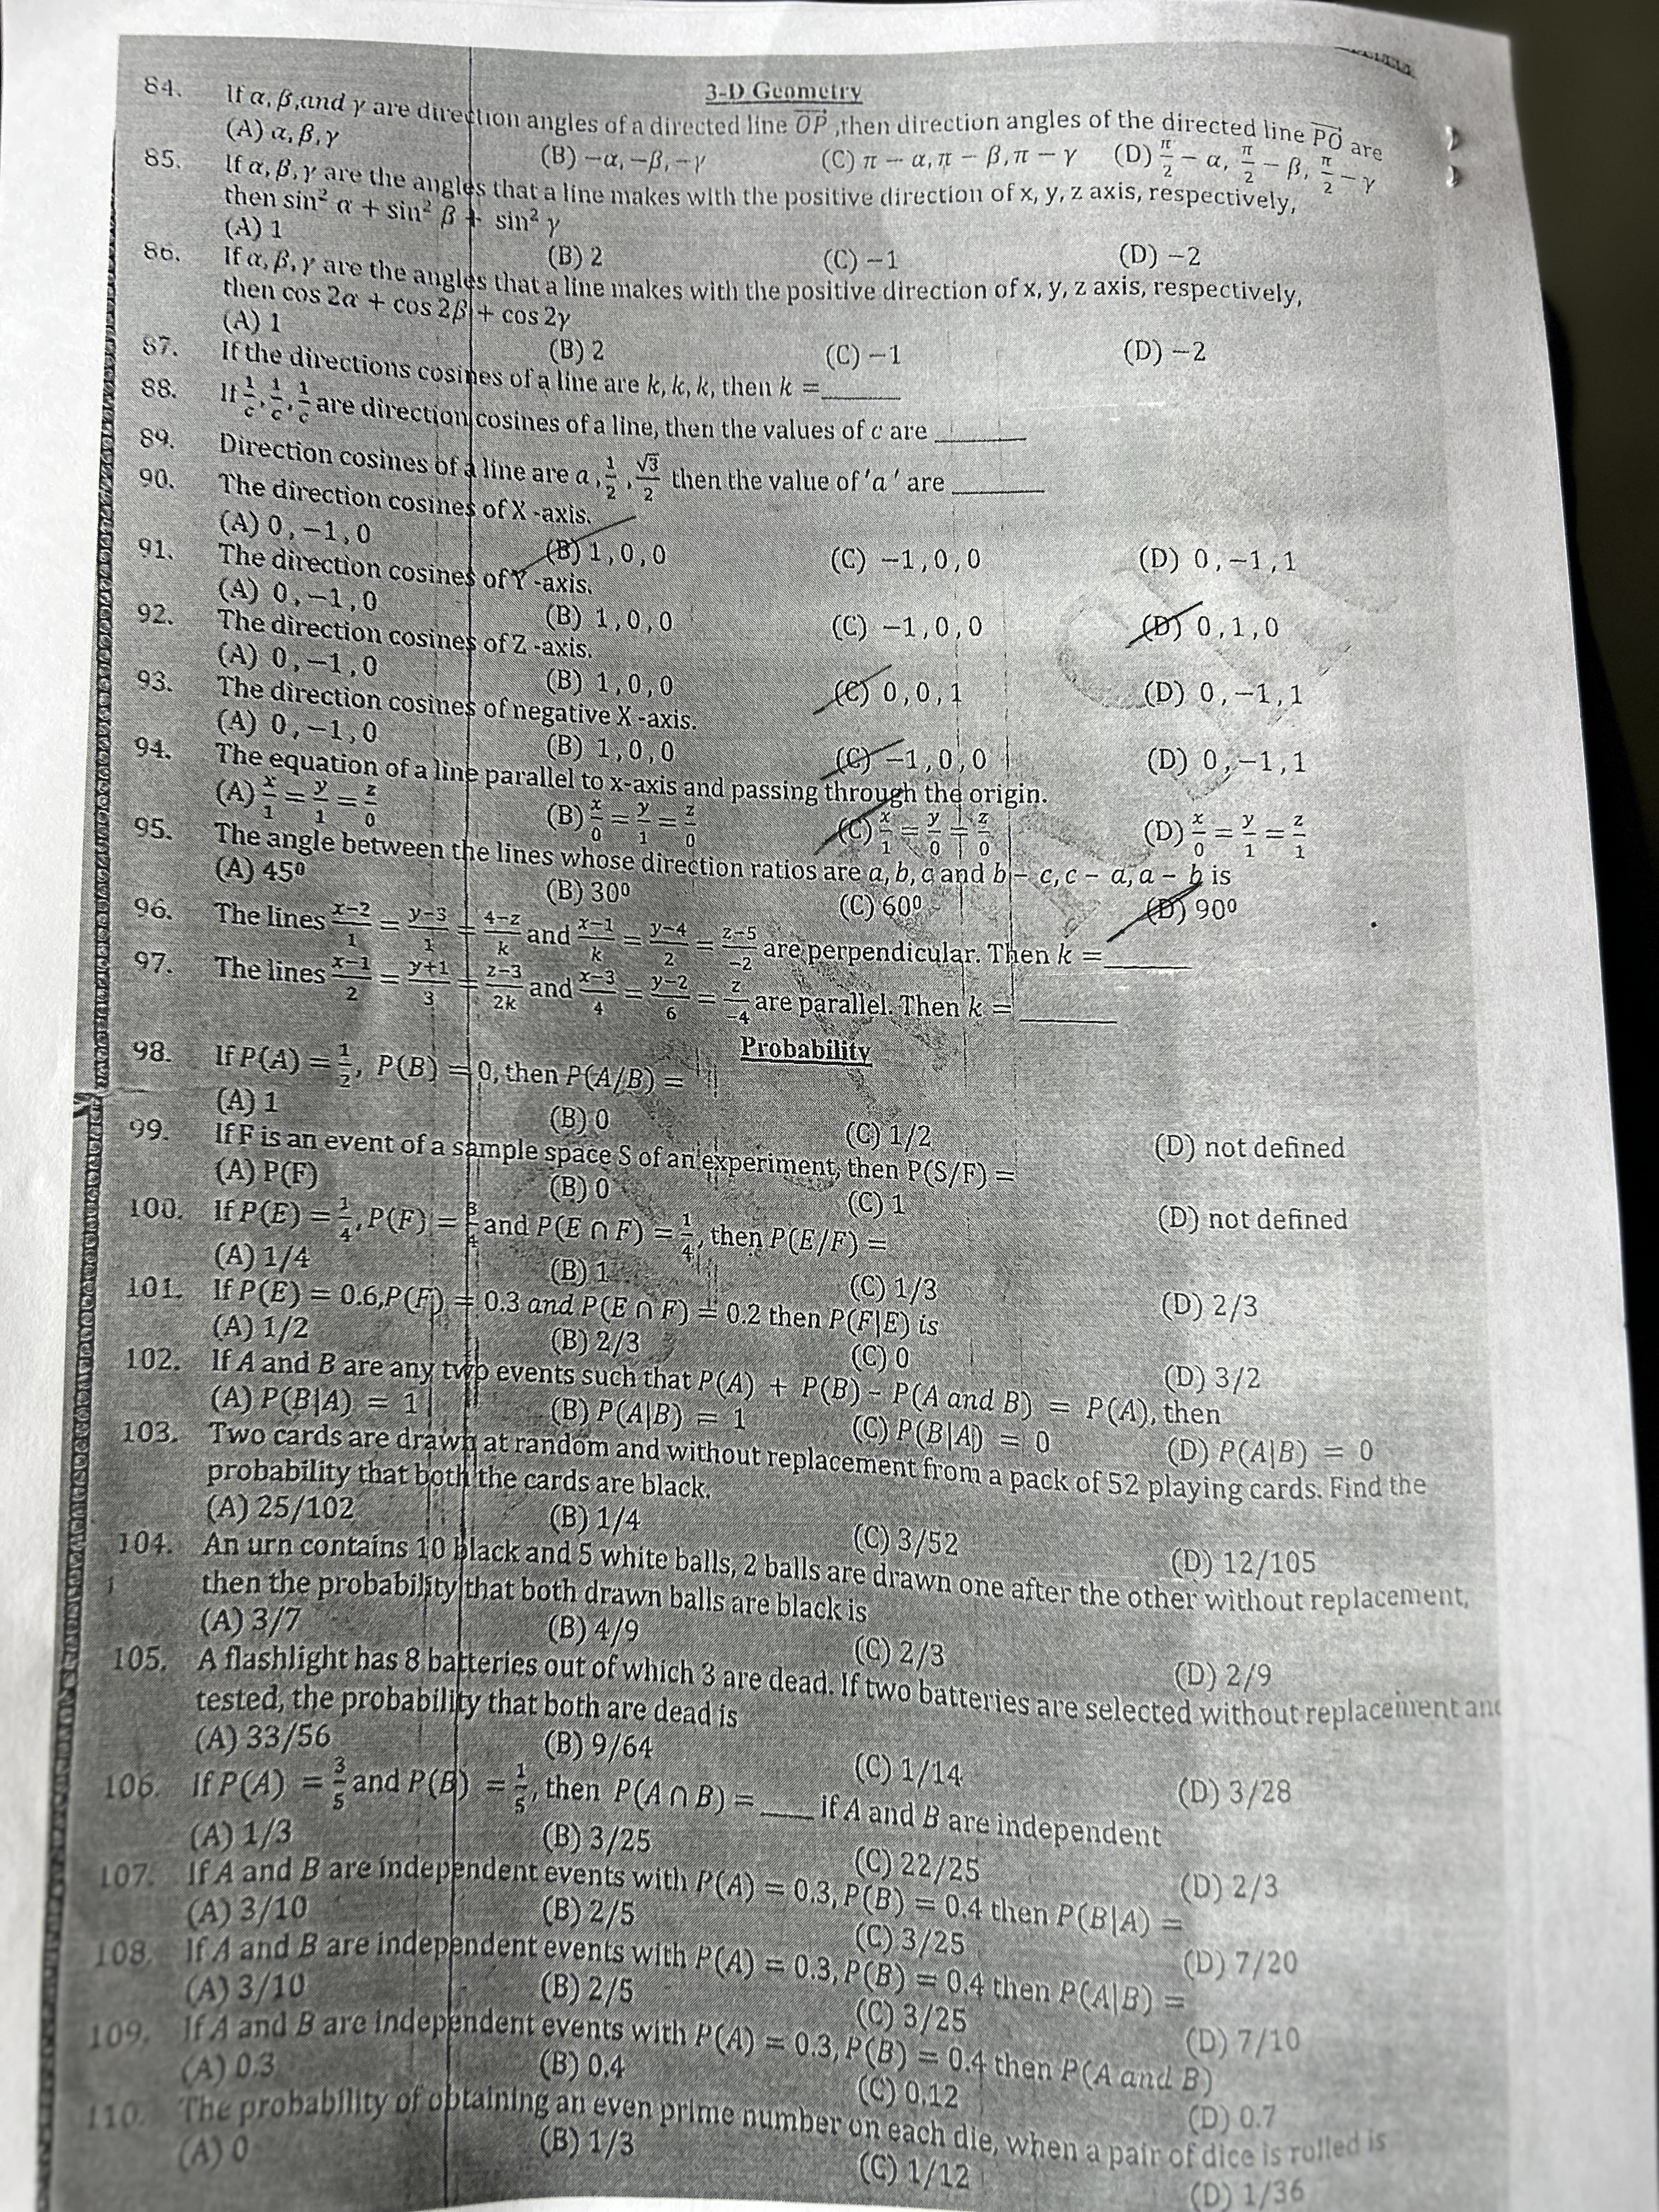 3-D Geometry
84. If α, β,and γ are direction angles of a directed line OP ,then direction angles of the directed line PO are
(A) α, β, γ (B) −α, −β, −γ (C) π − α, π − β, π − γ (D) π/2 − α, π/2 − β, π/2 − γ
85. If α, β, γ are the angles that a line makes with the positive direction of x, y, z axis, respectively,
then sin² α + sin² β + sin² γ
(A) 1 (B) 2 (C) −1 (D) −2
86. If α, β, γ are the angles that a line makes with the positive direction of x, y, z axis, respectively,
then cos 2α + cos 2β + cos 2γ
(A) 1 (B) 2 (C) −1 (D) −2
87. If the directions cosines of a line are k, k, k, then k = ______
88. If 1/c, 1/c, 1/c are direction cosines of a line, then the values of c are ______
89. Direction cosines of a line are a, 1/2, √3/2 then the value of 'a' are ______
90. The direction cosines of X -axis.
(A) 0 , −1 , 0 (B) 1 , 0 , 0 (C) −1 , 0 , 0 (D) 0 , −1 , 1
91. The direction cosines of Y -axis.
(A) 0 , −1 , 0 (B) 1 , 0 , 0 (C) −1 , 0 , 0 (D) 0 , 1 , 0
92. The direction cosines of Z -axis.
(A) 0 , −1 , 0 (B) 1 , 0 , 0 (C) 0 , 0 , 1 (D) 0 , −1 , 1
93. The direction cosines of negative X -axis.
(A) 0 , −1 , 0 (B) 1 , 0 , 0 (C) −1 , 0 , 0 (D) 0 , −1 , 1
94. The equation of a line parallel to x-axis and passing through the origin.
(A) x/1 = y/1 = z/0 (B) x/0 = y/1 = z/0 (C) x/1 = y/0 = z/0 (D) x/0 = y/1 = z/1
95. The angle between the lines whose direction ratios are a, b, c and b − c, c − a, a − b is
(A) 45⁰ (B) 30⁰ (C) 60⁰ (D) 90⁰
96. The lines x−2/1 = y−3/1 = 4−z/k and x−1/k = y−4/2 = z−5/−2 are perpendicular. Then k = ______
97. The lines x−1/2 = y+1/3 = z−3/2k and x−3/4 = y−2/6 = z/−4 are parallel. Then k = ______
Probability
98. If P(A) = 1/2, P(B) = 0, then P(A/B) =
(A) 1 (B) 0 (C) 1/2 (D) not defined
99. If F is an event of a sample space S of an experiment, then P(S/F) =
(A) P(F) (B) 0 (C) 1 (D) not defined
100. If P(E) = 1/4, P(F) = 3/4 and P(E ∩ F) = 1/4, then P(E/F) =
(A) 1/4 (B) 1 (C) 1/3 (D) 2/3
101. If P(E) = 0.6,P(F) = 0.3 and P(E ∩ F) = 0.2 then P(F|E) is
(A) 1/2 (B) 2/3 (C) 0 (D) 3/2
102. If A and B are any two events such that P(A) + P(B) − P(A and B) = P(A), then
(A) P(B|A) = 1 (B) P(A|B) = 1 (C) P(B|A) = 0 (D) P(A|B) = 0
103. Two cards are drawn at random and without replacement from a pack of 52 playing cards. Find the
probability that both the cards are black.
(A) 25/102 (B) 1/4 (C) 3/52 (D) 12/105
104. An urn contains 10 black and 5 white balls, 2 balls are drawn one after the other without replacement,
then the probability that both drawn balls are black is
(A) 3/7 (B) 4/9 (C) 2/3 (D) 2/9
105. A flashlight has 8 batteries out of which 3 are dead. If two batteries are selected without replacement and
tested, the probability that both are dead is
(A) 33/56 (B) 9/64 (C) 1/14 (D) 3/28
106. If P(A) = 3/5 and P(B) = 1/5, then P(A ∩ B) = ____ if A and B are independent
(A) 1/3 (B) 3/25 (C) 22/25 (D) 2/3
107. If A and B are independent events with P(A) = 0.3, P(B) = 0.4 then P(B|A) =
(A) 3/10 (B) 2/5 (C) 3/25 (D) 7/20
108. If A and B are independent events with P(A) = 0.3, P(B) = 0.4 then P(A|B) =
(A) 3/10 (B) 2/5 (C) 3/25 (D) 7/10
109. If A and B are independent events with P(A) = 0.3, P(B) = 0.4 then P(A and B)
(A) 0.3 (B) 0.4 (C) 0.12 (D) 0.7
110. The probability of obtaining an even prime number on each die, when a pair of dice is rolled is
(A) 0 (B) 1/3 (C) 1/12 (D) 1/36